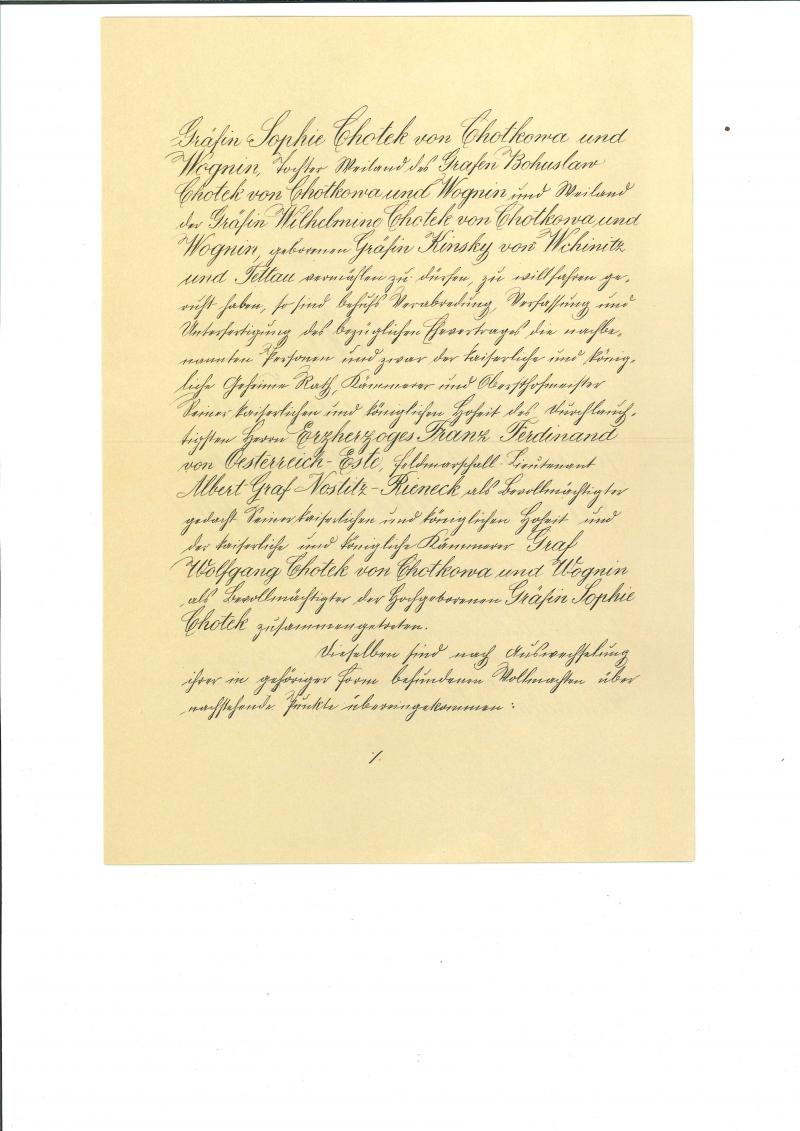 Gräfin Sophie Chotek von Chotkowa und
Wognin, Tochter Weiland des Grafen Bohuslaw
Chotek von Chotkowa und Wognin und Weiland
der Gräfin Wilhelmine Chotek von Chotkowa und
Wognin, geborenen Gräfin Kinsky von Wchinitz
und Tettau vermählen zu dürfen, zu willfahren ge-
ruht haben, so sind behufs Verabredung, Verfassung und
Unterfertigung des bezüglichen Ehevertrages die nachbe-
nannten Personen und zwar der kaiserliche und könig-
liche Geheime Rath, Kämmerer und Obersthofmeister
Seiner kaiserlichen und königlichen Hoheit des Durchlauch-
tigsten Herrn Erzherzoges Franz Ferdinand
von Oesterreich-Este, Feldmarschall-Lieutenant
Albert Graf Nostitz-Rieneck als Bevollmächtigter
gedacht Seiner kaiserlichen und königlichen Hoheit und
der kaiserliche und königliche Kämmerer Graf
Wolfgang Chotek von Chotkowa und Wognin
als Bevollmächtigter der Hochgeborenen Gräfin Sophie
Chotek zusammengetreten.
Dieselben sind nach Auswechselung
ihrer in gehöriger Form befundenen Vollmachten über
nachstehende Punkte übereingekommen:
./.